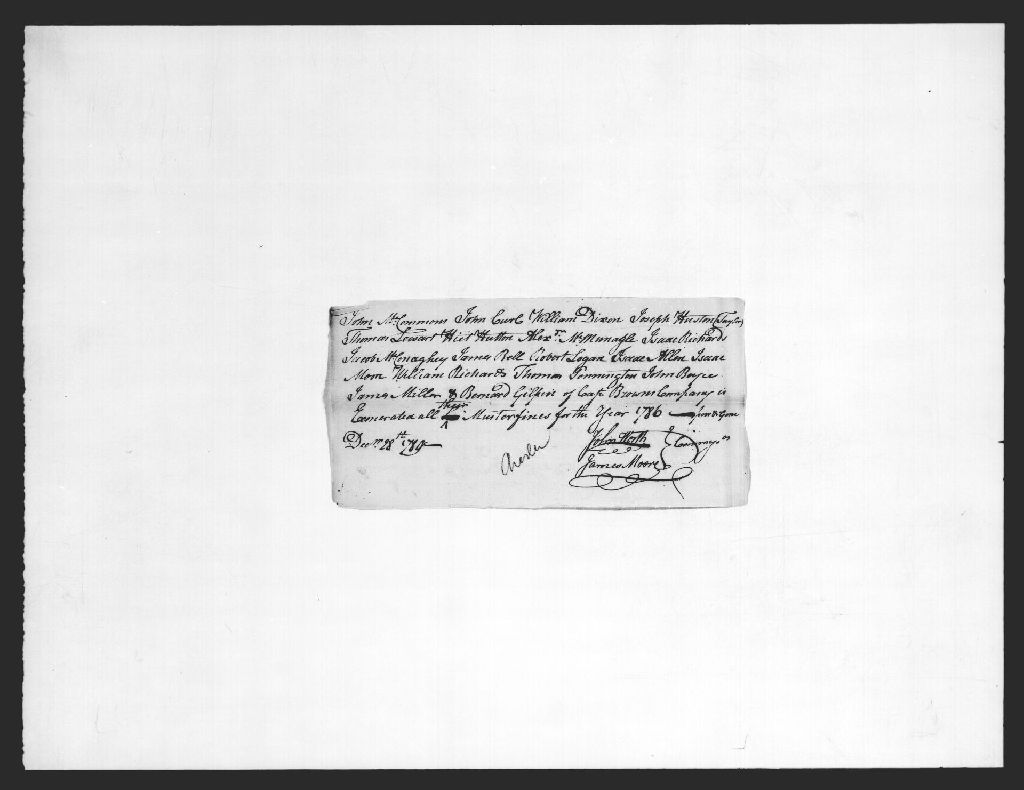 John McCommons John Earl William Dixon Joseph Huston (Taylor)
Thomas Steward Hiet Hutton Alexr. McMunagle Isaac Richards
Jacob McConaghey James Bell Robert Logan Isaac Allen Isaac
Mom William Richards Thomas Pennington John Boyce
James Miller & Bernard Gilpin of Capt Browns Company is
Exonerated all their Musterfines for the Year 1786
Decr. 28th 1784
John Wirth
James Moore
Chester